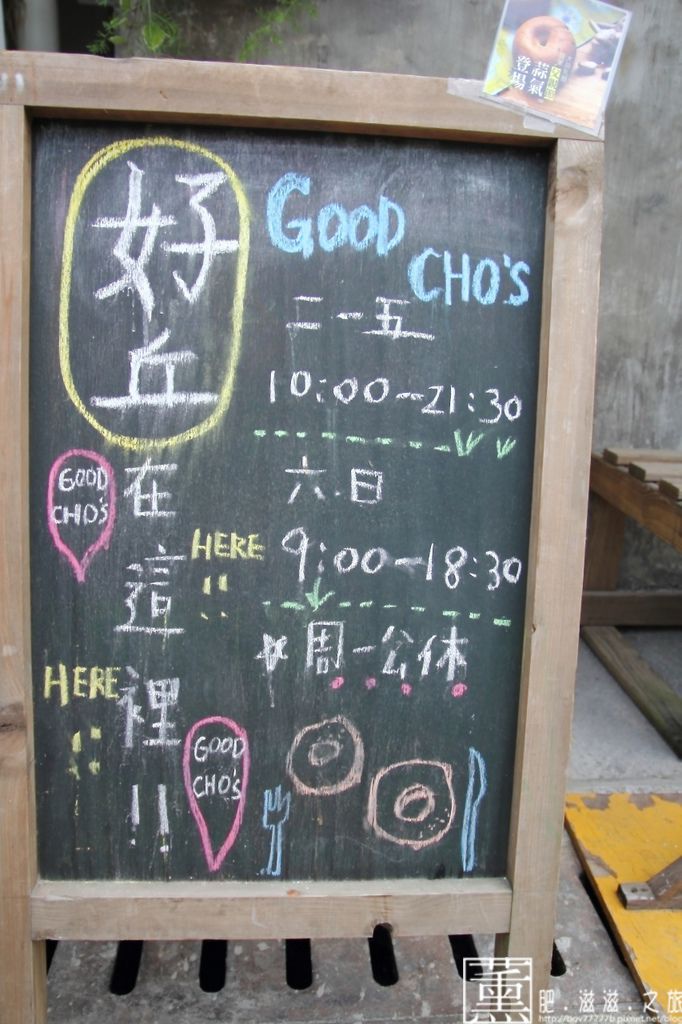 好丘
在這裡!!
GOOD
CHO'S
二-五
10:00-21:30
六.日
9:00-18:30
☆周一公休
GOOD
CHO'S
HERE
!!
HERE
!!
GOOD
CHO'S
蒜氣
登場
薰
肥.滋滋.之旅